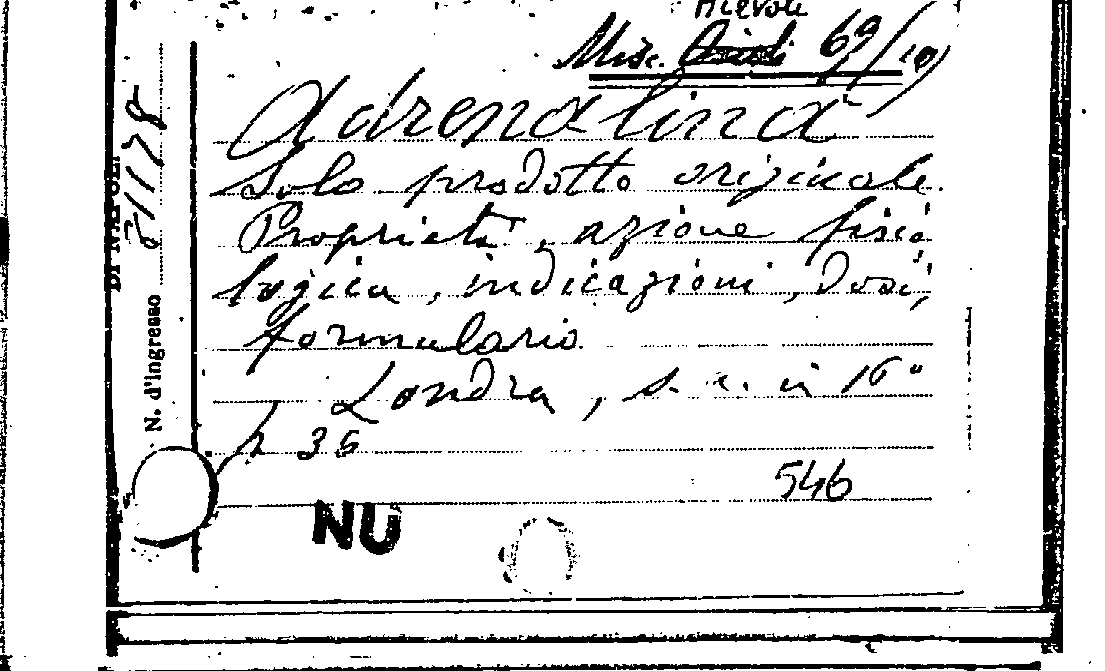 Misc. 69/(10)
Adrenalina
Solo prodotto originale.
Proprietà, azione fisio
logica, indicazioni, dosi,
formulario.
Londra, s. a. in 16°
p. 36
546
NU
DI NAPOLI
N. d'Ingresso